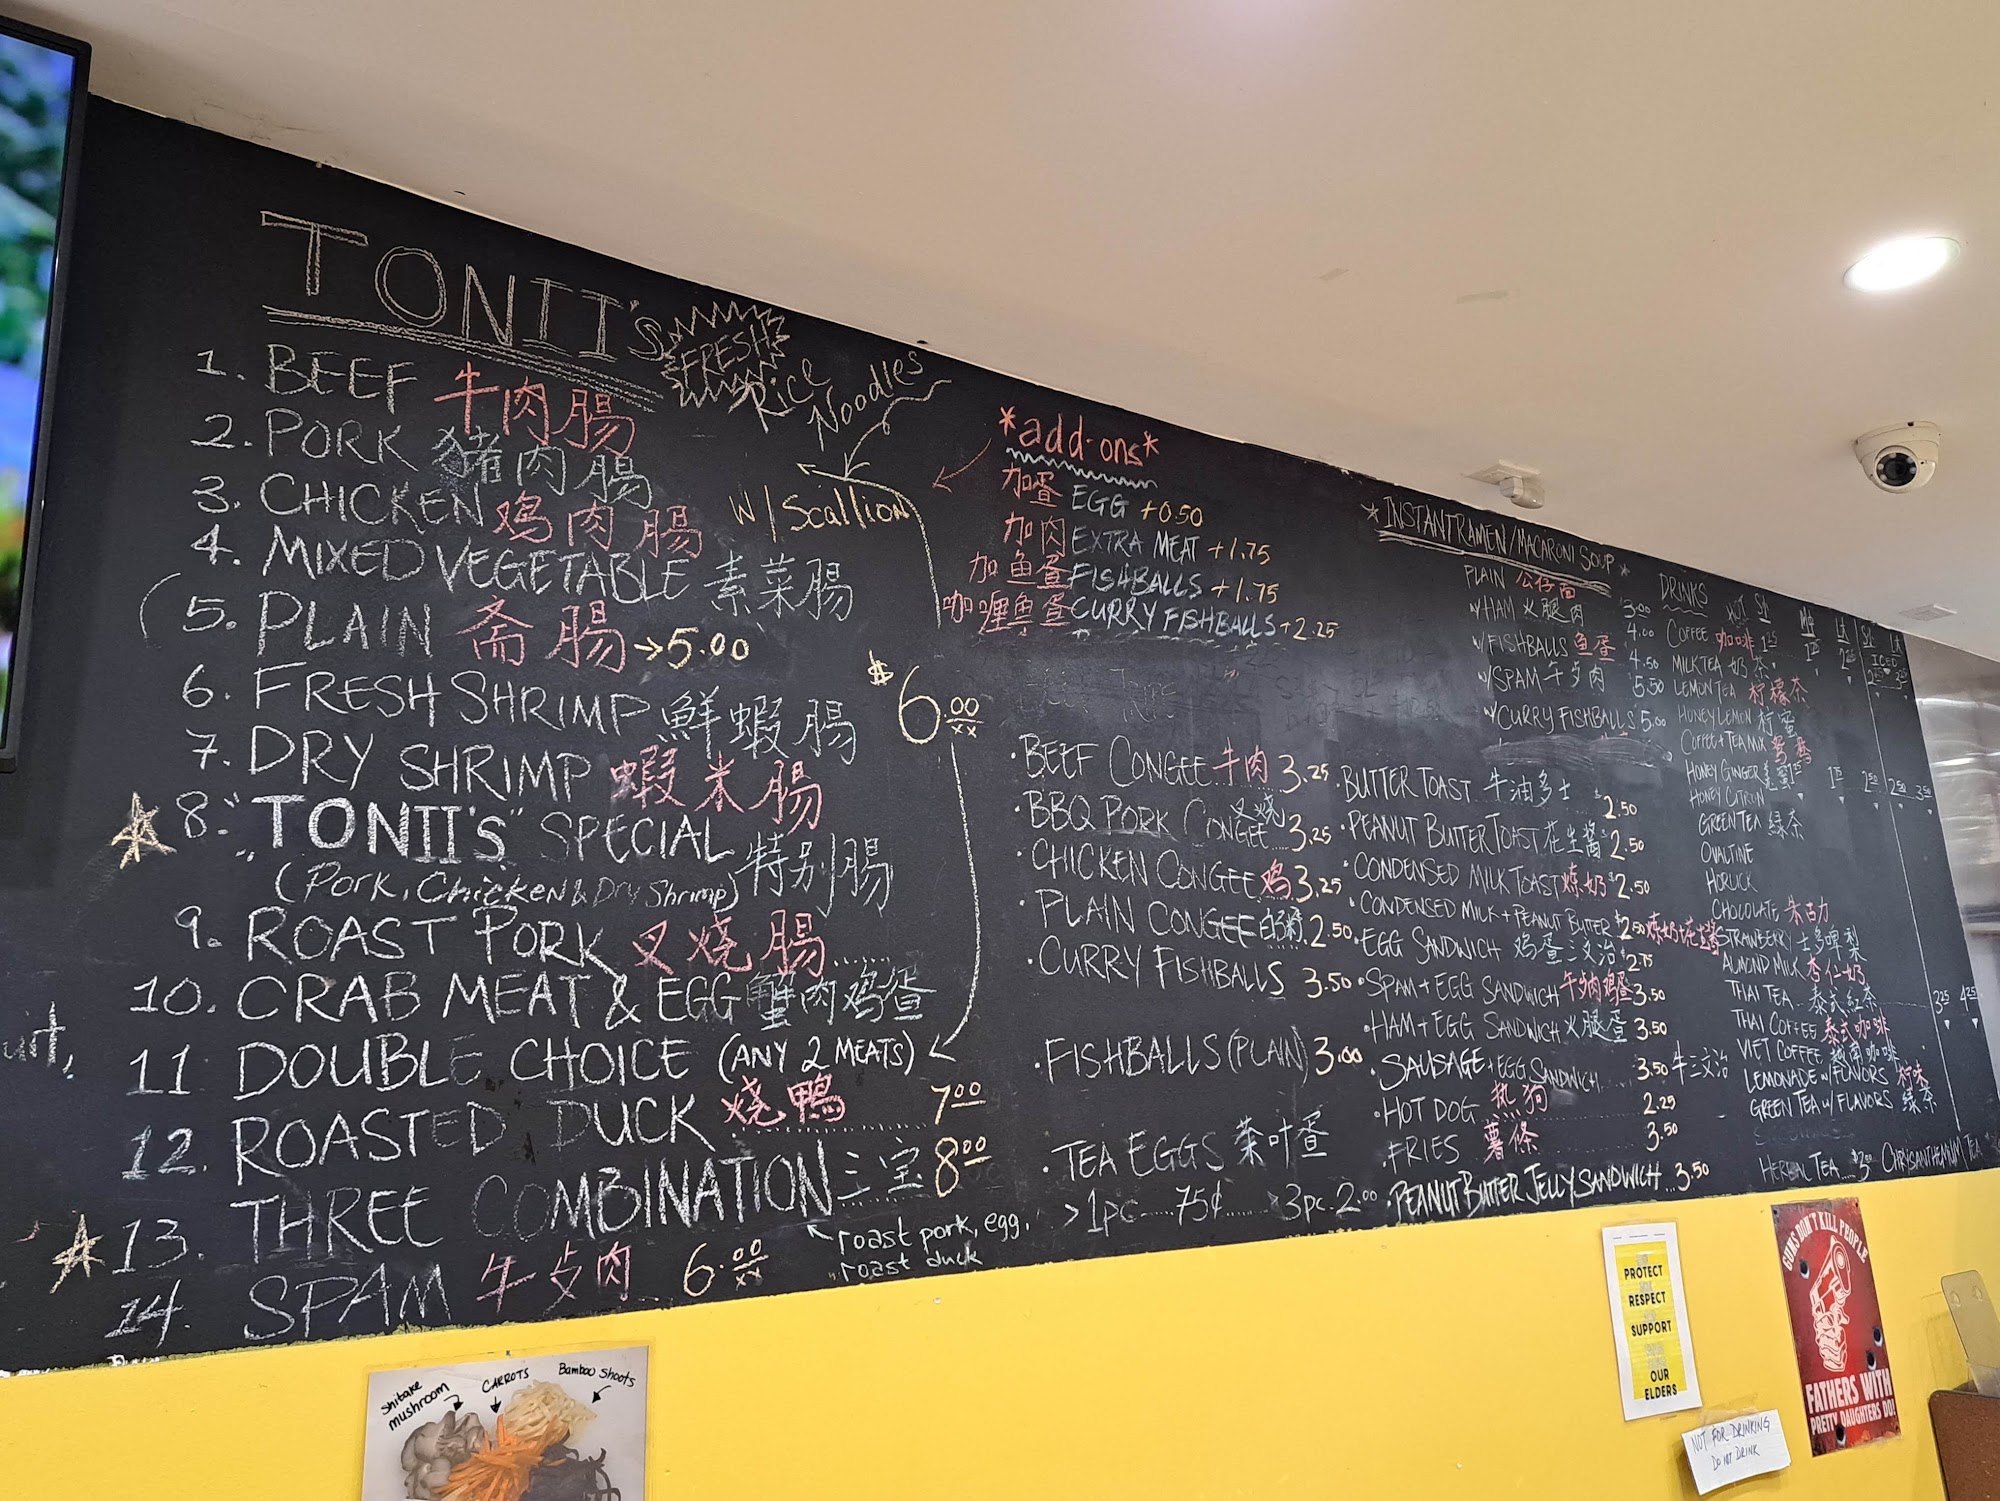 TONII'S
FRESH
Rice Noodles
1. BEEF 牛肉腸
2. PORK 豬肉腸
3. CHICKEN 鸡肉腸
W/ Scallion
4. MIXED VEGETABLE 素菜腸
5. PLAIN 斋腸 → 5.00
6. FRESH SHRIMP 鮮蝦腸
$6.00
7. DRY SHRIMP 蝦米腸
8. "TONII'S" SPECIAL 特别腸
(Pork, Chicken & Dry Shrimp)
9. ROAST PORK 叉燒腸
10. CRAB MEAT & EGG 蟹肉鸡蛋
11 DOUBLE CHOICE (ANY 2 MEATS)
12. ROASTED DUCK 烧鴨 7.00
13. THREE COMBINATION 三宝 8.00
roast pork, egg,
roast duck
14. SPAM 6.00
*add-ons*
加蛋 EGG +0.50
加肉 EXTRA MEAT +1.75
加鱼蛋 FISHBALLS +1.75
咖喱鱼蛋 CURRY FISHBALLS +2.25
· BEEF CONGEE 牛肉 3.25
· BBQ PORK CONGEE 叉烧 3.25
· CHICKEN CONGEE 鸡 3.25
· PLAIN CONGEE 白粥 2.50
· CURRY FISHBALLS 3.50
· FISHBALLS (PLAIN) 3.00
· TEA EGGS 茶叶蛋
> 1pc.....75¢..... > 3pc. 2.00
* INSTANT RAMEN / MACARONI SOUP *
PLAIN 公仔面 3.00
w/HAM 火腿肉 4.00
w/FISHBALLS 鱼蛋 4.50
w/SPAM 5.50
w/CURRY FISHBALLS 5.00
· BUTTER TOAST 牛油多士 2.50
· PEANUT BUTTER TOAST 花生醬 2.50
· CONDENSED MILK TOAST 炼奶 $2.50
· CONDENSED MILK + PEANUT BUTTER $2.50
· EGG SANDWICH 鸡蛋三文治 2.75
· SPAM + EGG SANDWICH 3.50
· HAM + EGG SANDWICH 火腿蛋 3.50
· SAUSAGE + EGG SANDWICH 3.50
· HOT DOG 热狗 2.25
· FRIES 薯條 3.50
· PEANUT BUTTER JELLY SANDWICH... 3.50
DRINKS
HOT
ICED
COFFEE 咖啡
MILK TEA 奶茶
LEMON TEA 柠檬茶
HONEY LEMON 柠蜜
COFFEE + TEA MIX 鸳鸯
HONEY GINGER
HONEY CITRON
GREEN TEA 綠茶
OVALTINE
HORLICK
CHOCOLATE 朱古力
STRAWBERRY 士多啤梨
ALMOND MILK 杏仁奶
THAI TEA 泰式紅茶
THAI COFFEE 泰式咖啡
VIET COFFEE 越南咖啡
LEMONADE w/ FLAVORS
GREEN TEA w/ FLAVORS 绿茶
HERBAL TEA... $3.00 CHRYSANTHEMUM TEA
Shitake mushroom
CARROTS
Bamboo Shoots
PROTECT
RESPECT
SUPPORT
OUR
ELDERS
GUNS DON'T KILL PEOPLE
FATHERS WITH
PRETTY DAUGHTERS DO!
NOT FOR DRINKING
DO NOT DRINK